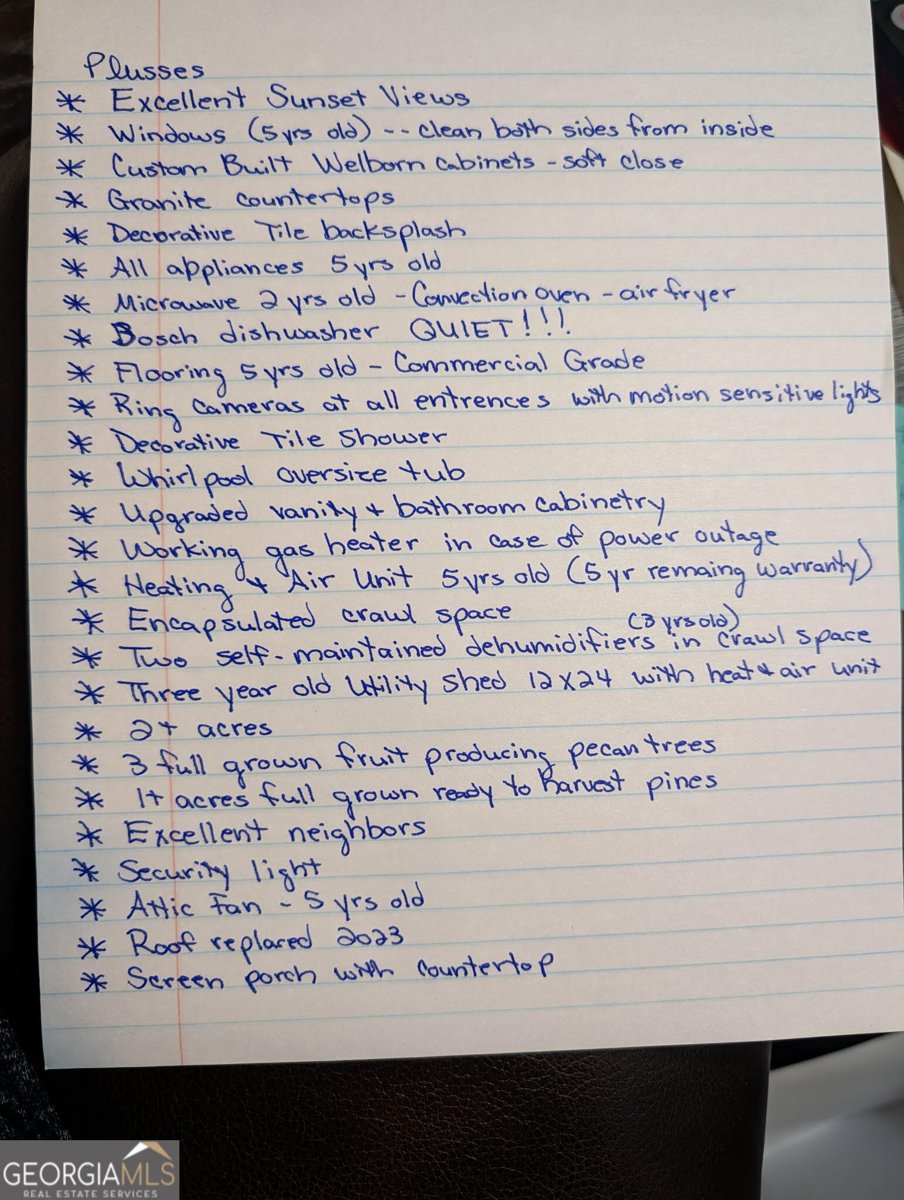 Plusses
* Excellent Sunset Views
* Windows (5 yrs old) -- clean both sides from inside
* Custom Built Welborn cabinets - soft close
* Granite countertops
* Decorative Tile backsplash
* All appliances 5 yrs old
* Microwave 2 yrs old - Convection oven - air fryer
* Bosch dishwasher QUIET!!!
* Flooring 5 yrs old - Commercial Grade
* Ring Cameras at all entrences with motion sensitive lights
* Decorative Tile Shower
* Whirlpool oversize tub
* Upgraded vanity + bathroom cabinetry
* Working gas heater in case of power outage
* Heating + Air Unit 5 yrs old (5 yr remaing warranty)
* Encapsulated crawl space
* Two self-maintained dehumidifiers (3 yrs old) in crawl space
* Three year old Utility Shed 12x24 with heat + air unit
* 2+ acres
* 3 full grown fruit producing pecan trees
* 1+ acres full grown ready to harvest pines
* Excellent neighbors
* Security light
* Attic Fan - 5 yrs old
* Roof replaced 2023
* Screen porch with countertop
GEORGIAMLS
REAL ESTATE SERVICES